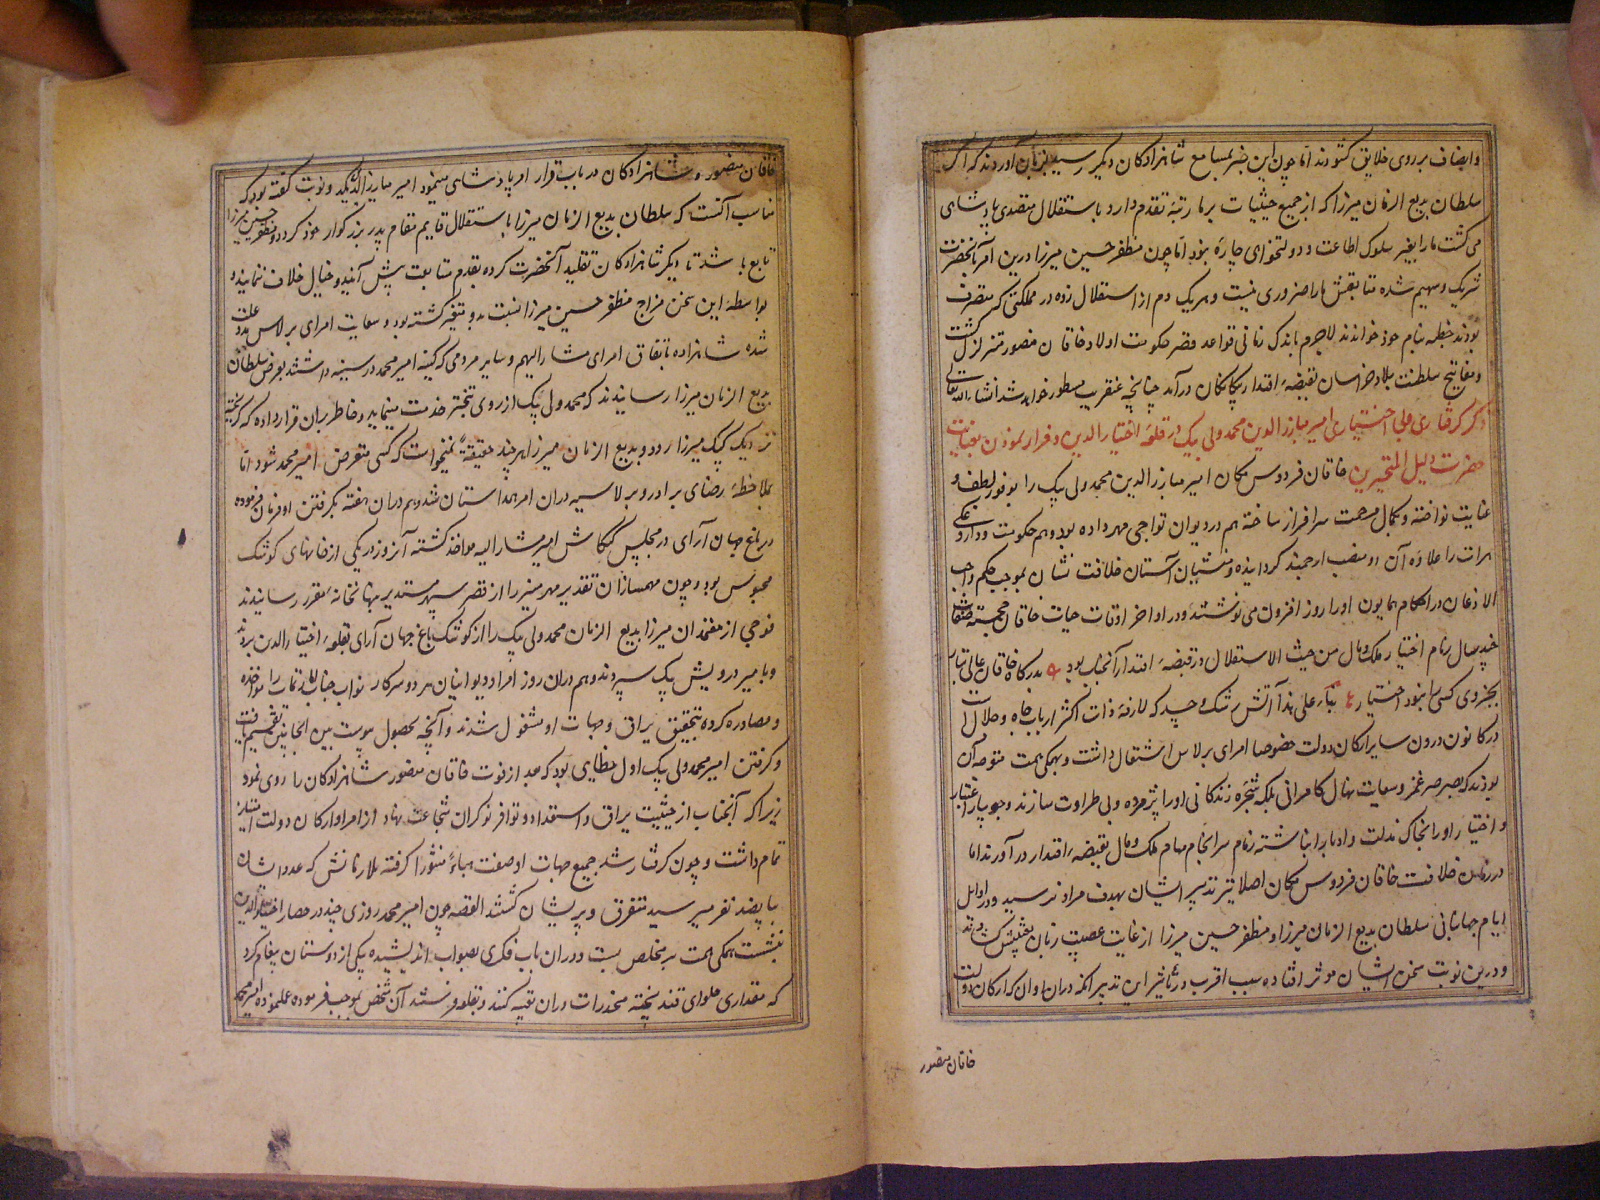 وانصاف بر روی خلایق کشودند اما چون این خبر بمسامع شاهزادکان دیکر رسید بزبان آوردند که اکر
سلطان بدیع الزمان میرزا که از جمیع حیثیات بر ما رتبهٔ تقدم دارد باستقلال متصدی پادشاهی
می کشت ما را بغیر سلوک اطاعت و دولتخواهی چاره نبود اما چون مظفر حسین میرزا درین امر بآنحضرت
شریک و سهیم شده متابعتش ما را ضروری نیست و هر یک دم از استقلال زده در مملکتی که متصرف
بودند خطبه بنام خود خواندند لاجرم باندک زمانی قواعد قصر حکومت اولاد خاقان منصور متزلزل کشت
و مفاتیح سلطنت بلاد خراسان بقبضهٔ اقتدار بیکانکان درآمد چنانچه عنقریب مسطور خواهد شد انشاء الله تعالی
ذکر کرفتاری بی اختیاری امیر مبارزالدین محمد ولی بیک در قلعهٔ اختیارالدین و فرار نمودن بعنایت
حضرت دلیل المتحیرین خاقان فردوس مکان امیر مبارزالدین محمد ولی بیک را بوفور لطف و
عنایت نواخته و بکمال مرحمت سرافراز ساخته هم در دیوان تواجی مهر داده بود و هم حکومت و داروغکی
هرات را علاوهٔ آن دو منصب ارجمند کردانیده و منشیان آستان خلافت نشان بموجب حکم واجب
الاذعان در احکام همایون او را روز افزون می نوشتند و در اواخر اوقات حیات خاقان خجسته صفات
چند سال زمام اختیار ملک و مال من حیث الاستقلال در قبضهٔ اقتدار آنجناب بود بدرکاه خاقان عالی تبار
بجز وی کسی را نبود اختیار بناء علی هذا آتش رشک و حسد که لازمهٔ ذات اکثر ارباب جاه و جلال است
در کانون درون سایر ارکان دولت خصوصا امرای برلاس اشتعال داشت و بهمکی همت متوجه آن
بودند که بصرصر غمز و سعایت نهال کامرانی بلکه شجرهٔ زندکانی او را پژمرده و بی طراوت سازند و جویبار اعتبار
و اختیار او را بخاک مذلت و ادبار انباشته زمام سرانجام مهام ملک و مال بقبضهٔ اقتدار درآورند اما
در زمان خلافت خاقان فردوس مکان اصلا تیر تدبیر ایشان بهدف مراد نرسید و در اوایل
ایام جهانبانی سلطان بدیع الزمان میرزا و مظفر حسین میرزا از غایت عصبیت زبان بغیبتش کشودند
و درین نوبت سخن ایشان موثر افتاده سبب اقرب در تأثیر این تدبیر آنکه در آن اوان که ارکان دولت
خاقان منصور
خاقان منصور و شاهزادکان در باب قرار امر پادشاهی سخن مینمود امیر مبارزالدین یک نوبت کفته بود که
مناسب آنست که سلطان بدیع الزمان میرزا باستقلال قایم مقام پدر بزرکوار خود کردد و مظفر حسین میرزا
تابع باشد تا دیکر شاهزادکان تقلید آنحضرت کرده بقدم متابعت پیش آیند و خیال خلاف ننمایند و
بواسطهٔ این سخن مزاج مظفر حسین میرزا نسبت بدو متغیر کشته بود و سعایت امرای برلاس مدد علت
شده شاهزاده باتفاق امرای مشار الیهم و سایر مردمی که کینهٔ امیر محمد در سینه داشتند بعرض سلطان
بدیع الزمان میرزا رسانیدند که محمد ولی بیک از روی تجبر خدمت مینماید و خاطر بران قرار داده که کریخته
نزدیک کپک میرزا رود و بدیع الزمان میرزا هر چند حقیقةً نمیخواست که کسی متعرض امیر محمد شود اما
بملاحظهٔ رضای برادر و برلاسیه دران امر همداستان شد و هم دران هفته بکرفتن او فرمان فرموده
در باغ جهان آرای در مجلس کنکاش امیر مشار الیه مواخذ کشته آنروز در یکی از خانهای کوشک
محبوس بود و چون مهمسازان تقدیر مهر منیر را از قصر سپهر مستدیر بنهانخانهٔ مقرر رسانیدند
فوجی از معتمدان میرزا بدیع الزمان محمد ولی بیک را از کوشک باغ جهان آرای بقلعهٔ اختیارالدین بردند
و بامیر درویش بیک سپردند و هم دران روز امرا و دیوانیان هر دو سرکار نواب جناب را مواخذه
و مصادره کرده بتحقیق یراق و جهات او مشغول شدند و آنچه بحصول پیوست بین الجانبین تقسیم یافت
و کرفتن امیر محمد ولی بیک اول خطایی بود که بعد از فوت خاقان منصور شاهزادکان را روی نمود
زیرا که آنجناب از حیثیت یراق و استعداد و توافر نوکران شجاعت نهاد از امرا و ارکان دولت امتیاز
تمام داشت و چون کرفتار شد جمیع جهات او صفت هباءً منثورا کرفته ملازمانش که عدد ایشان
بپانصد نفر میرسید متفرق و پریشان کشتند القصه چون امیر محمد روزی چند در حصار اختیارالدین
نشست همکی همت بر مخلص بست و دران باب فکری بصواب اندیشیده یکی از دوستان پیغام کرد
که مقداری حلوای قند پخته مخدرات دران تعبیه کنند و بقلعه فرستند آن شخص بموجب فرموده عمل نموده امیر محمد